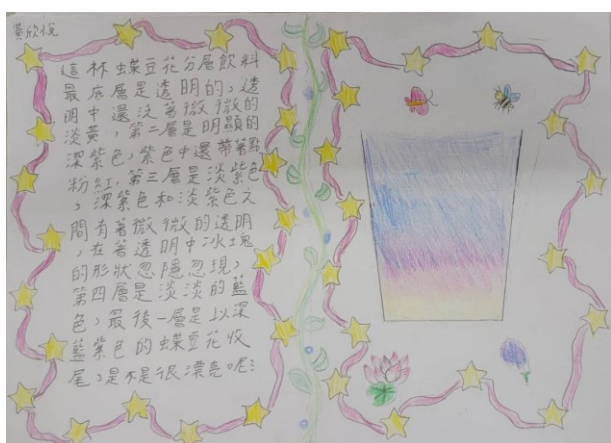 黃欣悅
這杯蝶豆花分層飲料
最底層是透明的，透
明中還泛著微微的
淡黃，第二層是明顯的
深紫色，紫色中還帶著點
粉紅，第三層是淡紫色
，深紫色和淡紫色之
間有著微微的透明
，在著透明中冰塊
的形狀忽隱忽現，
第四層是淡淡的藍
色，最後一層是以深
藍紫色的蝶豆花收
尾，是不是很漂亮呢？